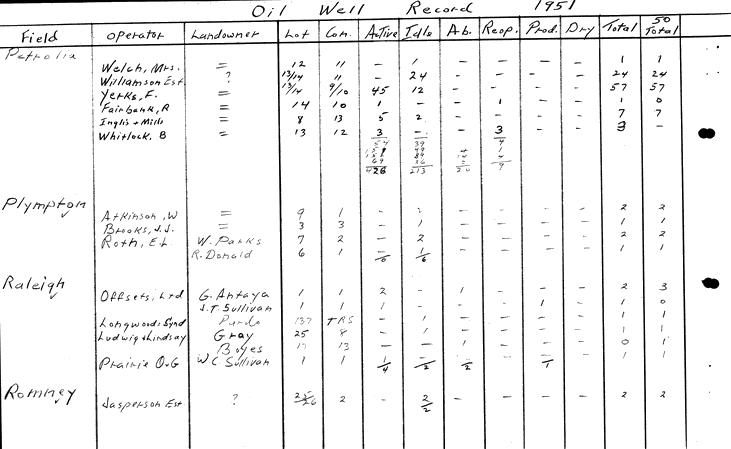 Oil Well Record 1951
Field Operator Landowner Lot Con. Active Idle Ab. Reop. Prod. Dry Total 50 Total
Petrolia
Welch, Mrs. = 12 11 - 1 - - - - 1 1
Williamson Est. ? 13/14 11 - 24 - - - - 24 24
Yerks, F. = 13/14 9/10 45 12 - - - - 57 57
Fairbank, R = 14 10 1 - - 1 - - 1 0
Inglis + Mills = 8 13 5 2 - - - - 7 7
Whitlock, B = 13 12 3 - - 3 - - 3 -
54 39 4
49 4 1
89 4
69 36
426 213 20 9
Plympton
Atkinson, W = 9 1 - 2 - - - - 2 2
Brooks, J.J. = 3 3 - 1 - - - - 1 1
Roth, E.L. W. Parks 7 2 - 2 - - - - 2 2
R. Donald 6 1 - 1 - - - - 1 1
0 6
Raleigh
Offsets, Ltd G. Antaya 1 1 2 - 1 - - - 2 3
J.T. Sullivan 1 1 1 - - - 1 - 1 0
Longwoods Synd Pardo 137 TRS - 1 - - - - 1 1
Ludwig + Lindsay Gray 25 8 - 1 - - - - 1 1
Boyes 17 13 - - 1 - - - 0 1
Prairie O+G W C Sullivan 1 1 1 - - - - - 1 1
4 2 2 1
Romney
Jasperson Est ? 2 - 2 - - - - 2 2
2